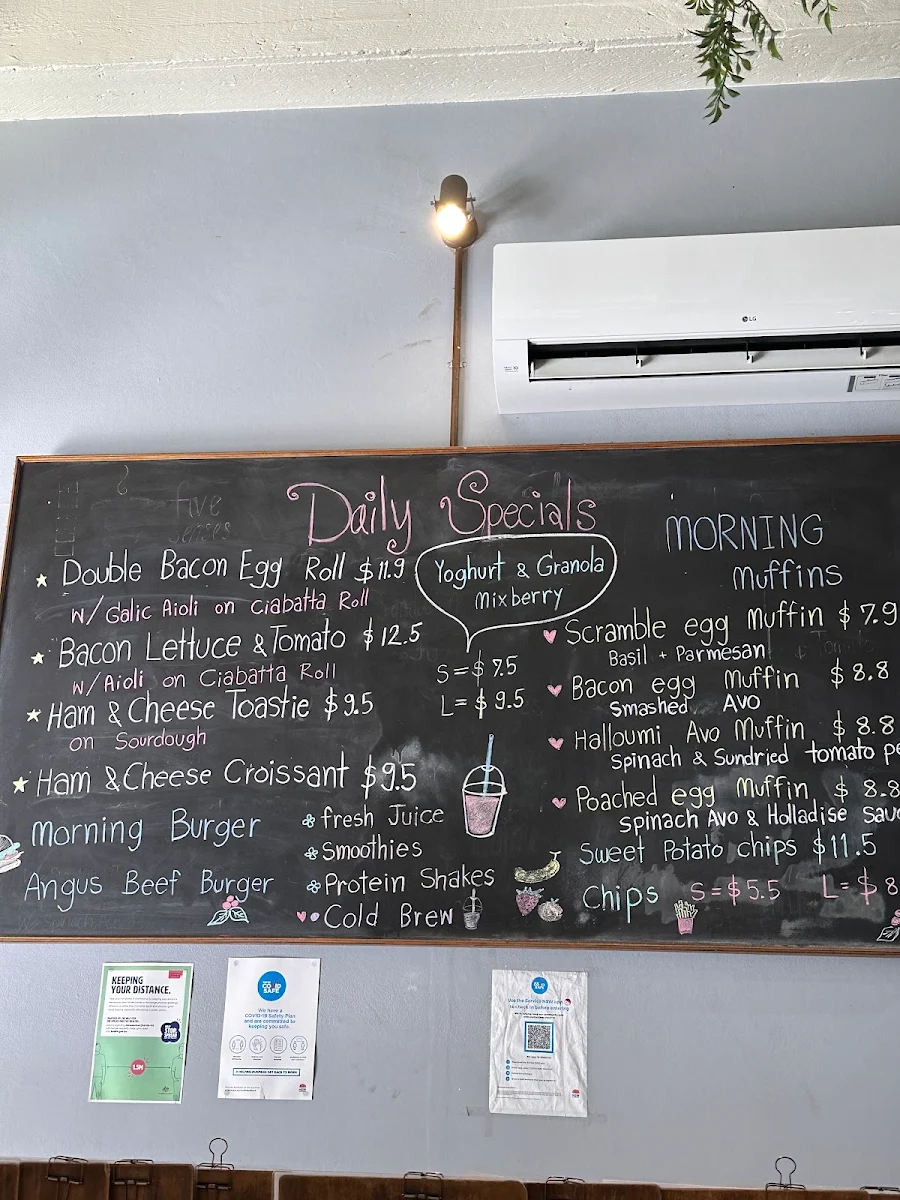 LG
five
senses
Daily Specials
Double Bacon Egg Roll $11.9
w/ Galic Aioli on Ciabatta Roll
Bacon Lettuce & Tomato $12.5
w/ Aioli on Ciabatta Roll
Ham & Cheese Toastie $9.5
on Sourdough
Ham & Cheese Croissant $9.5
Morning Burger
Angus Beef Burger
Yoghurt & Granola
mixberry
S=$7.5
L=$9.5
fresh Juice
Smoothies
Protein Shakes
Cold Brew
MORNING
Muffins
Scramble egg Muffin $7.9
Basil + Parmesan
Bacon egg Muffin $8.8
Smashed Avo
Halloumi Avo Muffin $8.8
Spinach & Sundried tomato pe
Poached egg Muffin $8.8
spinach Avo & Holladise sau
Sweet Potato chips $11.5
Chips S=$5.5 L=$8
KEEPING
YOUR DISTANCE.
1.5M
COVID
SAFE
We have a
COVID-19 Safety Plan
and are committed to
keeping you safe.
Use the Service NSW app
to check in before entering